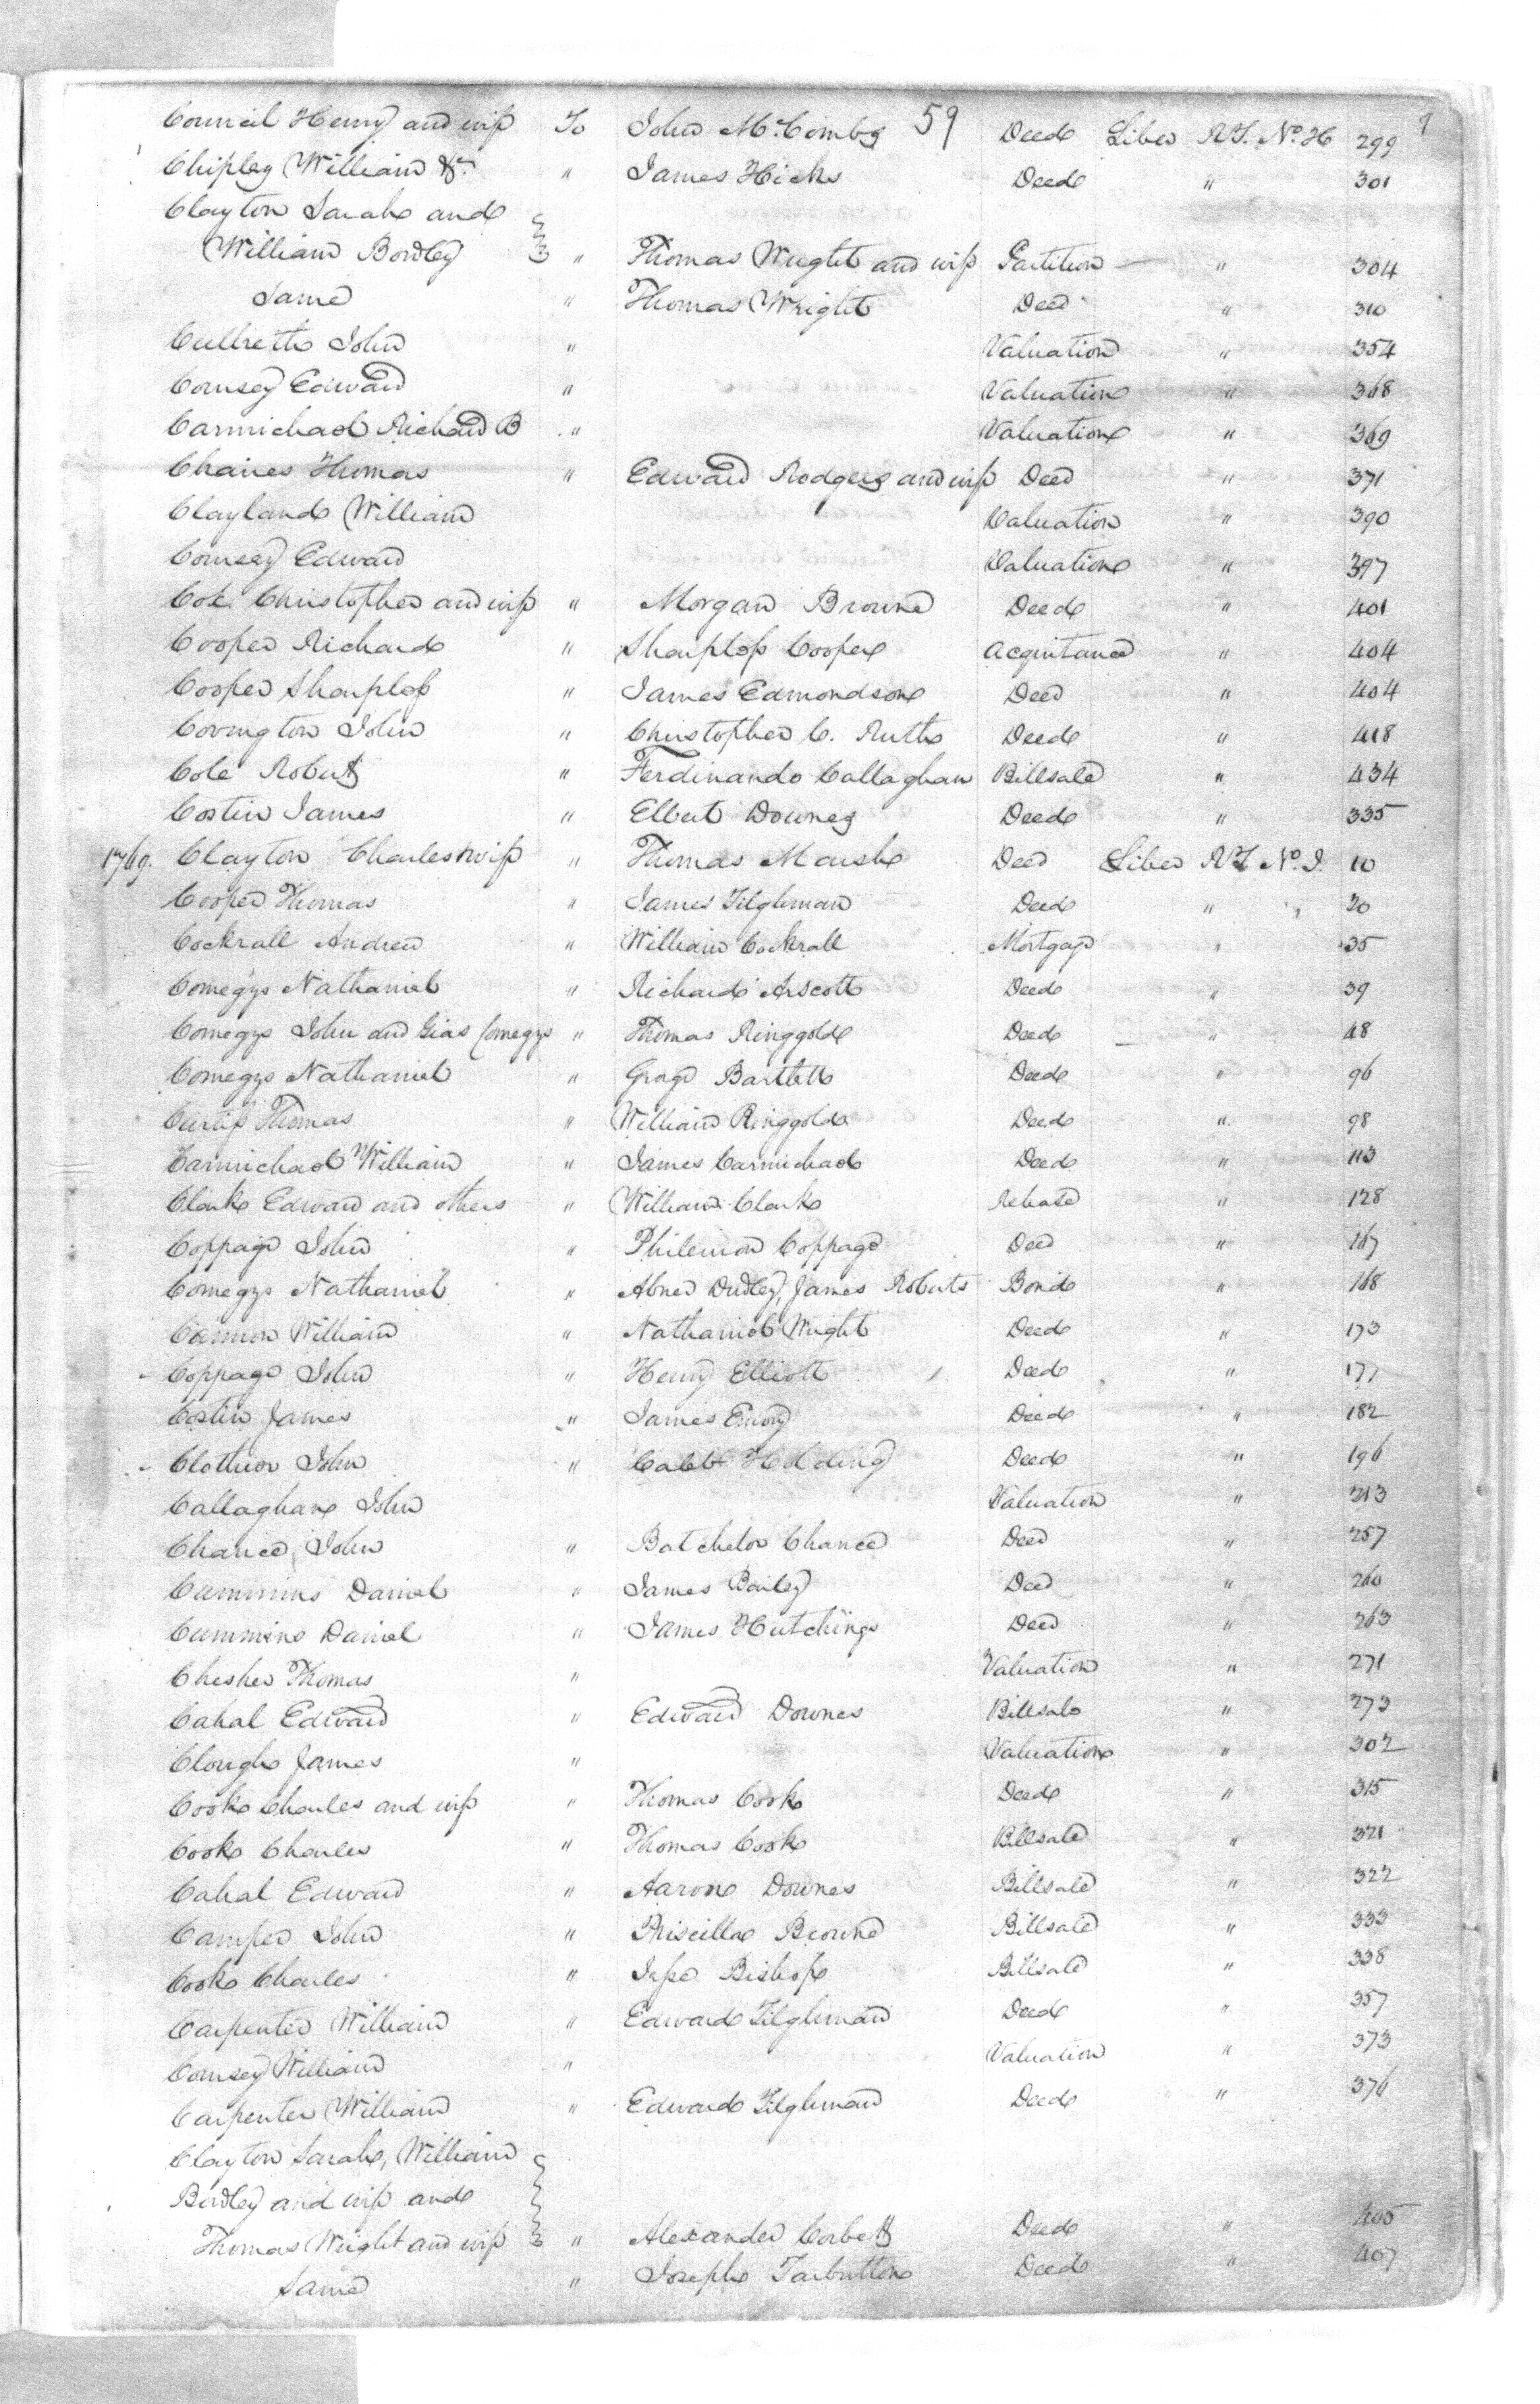 59
Council Henry and wife To John McCombs Deed Liber RT. No. H 299
Chipley William &c. " James Hicks Deed " 301
Clayton Sarah and
William Bordley " Thomas Wright and wife Partition " 304
Same " Thomas Wright Deed " 310
Culbreth John " Valuation " 354
Comsey Edward " Valuation " 368
Carmichael Richard B " Valuation " 369
Chaires Thomas " Edward Rodgers and wife Deed " 371
Clayland William Valuation " 390
Comsey Edward Valuation " 397
Cox Christopher and wife " Morgan Browne Deed " 401
Cooper Richard " Sharpless Cooper Acquitance " 404
Cooper Sharpless " James Edmondson Deed " 404
Covington John " Christopher C. Ruth Deed " 418
Cole Robert " Ferdinando Callaghan Billsale " 434
Costin James " Elbert Downes Deed " 335
1769. Clayton Charles & wife " Thomas Marsh Deed Liber RT No. I. 10
Cooper Thomas " James Tilghman Deed " " 20
Cockrall Andrew " William Cockrall Mortgage " 35
Comegys Nathaniel " Richard Arscott Deed " 39
Comegys John and Gias Comegys " Thomas Ringgold Deed " 48
Comegys Nathaniel " George Bartlett Deed " 96
Curtis Thomas " William Ringgold Deed " 98
Carmichael William " James Carmichael Deed " 113
Clark Edward and others " William Clark Release " 128
Coppage John " Philemon Coppage Deed " 167
Comegys Nathaniel " Abner Dudley, James Roberts Bond " 168
Cannon William " Nathaniel Wright Deed " 173
Coppage John " Henry Elliott Deed " 177
Costin James " James Emory Deed " 182
Clothier John " Caleb Holding Deed " 196
Callaghane John Valuation " 213
Chance John " Batchelor Chance Deed " 257
Cummins Daniel " James Bailey Deed " 260
Cummins Daniel " James Hutchings Deed " 263
Chesher Thomas " Valuation " 271
Cahal Edward " Edward Downes Billsale " 273
Clough James " Valuation " 302
Cook Charles and wife " Thomas Cook Deed " 315
Cook Charles " Thomas Cook Billsale " 321
Cahal Edward " Aaron Downes Billsale " 322
Camper John " Priscilla Browne Billsale " 333
Cook Charles " Jesse Bishop Billsale " 338
Carpenter William " Edward Tilghman Deed " 357
Comsey William " Valuation " 373
Carpenter William " Edward Tilghman Deed " 376
Clayton Sarah, William
Bordley and wife and
Thomas Wright and wife " Alexander Corbett Deed " 405
Same " Joseph Tarbutton Deed " 407